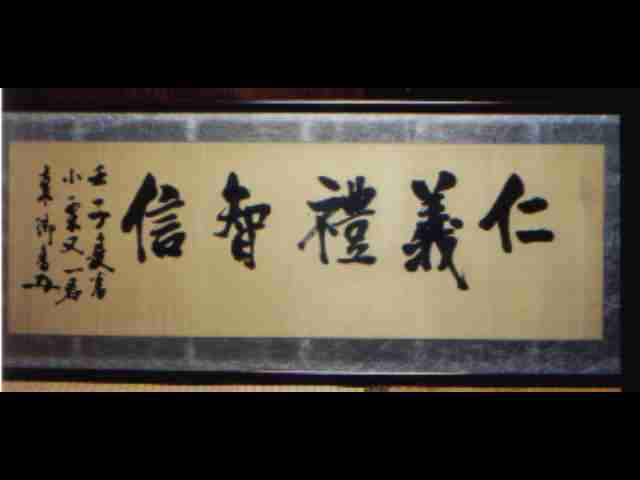 仁義禮智信
壬子夏書
小栗又一君